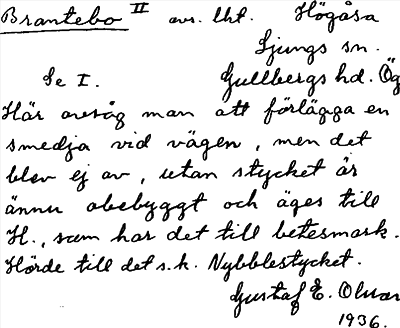 Brantebo II avs. lht. Högåsa
Ljungs sn.
Se I. Gullbergs hd. Ög
Här avsåg man att förlägga en
smedja vid vägen, men det
blev ej av, utan stycket är
ännu obebyggt och äges till
H., som har det till betesmark.
Hörde till det s.k. Nybblestycket.
Gustaf E. Olsson
1936.